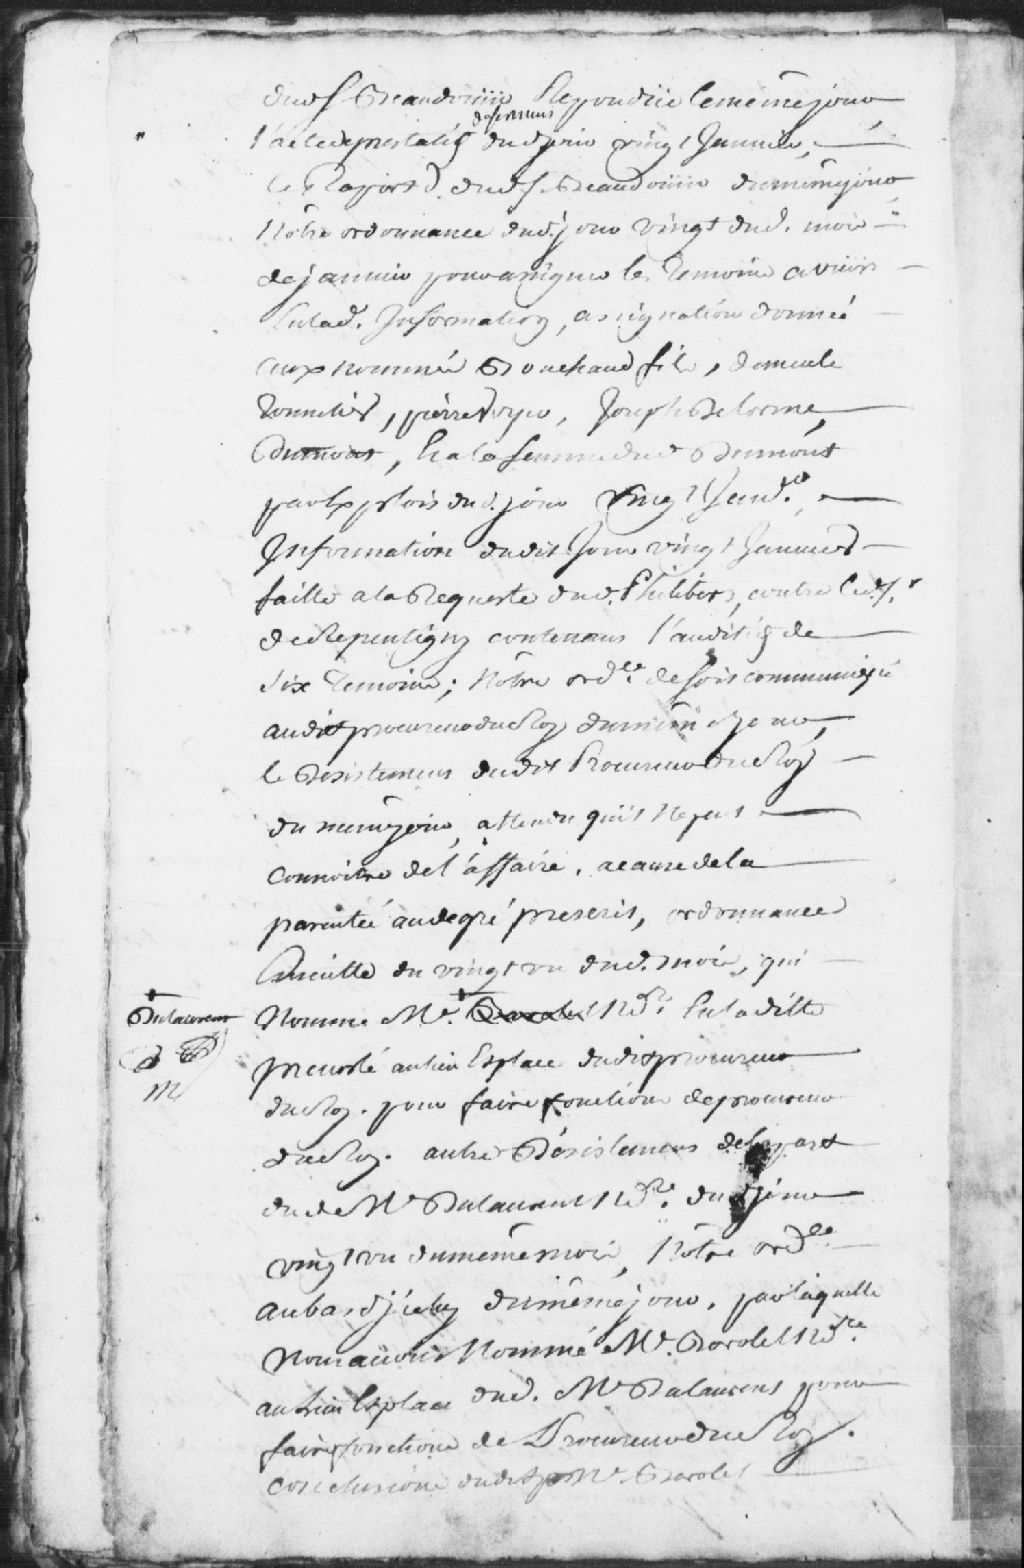 dud. S. Beaudoüin Repondüe le même jour,
l'acte de prestatiõ de serment dud. jour vingt Janvier,
le Raport dud. S. Beaudoüin du même jour
Nôtre ordonnance dud. jour vingt dud. mois
de janvier pour assigner les Temoins a venir
En lad. Information, assignation donneé
aux nommés Bouchaud fils, domicile
Tonnelier, pierre Voyer, Joseph Delorme,
Dumont, Et a la femme dud. Dumont
par Exploits dud. jour vingt Janv.er,
Information dudit Jour vingt Janvier
faitte a la Requeste dud. Philibert, contre led. S.r
de Repentigny contenant l'auditiõ de
six Temoins; Nôtre ord.ce de soit communiqué
audit procureur du Roy du même jour,
le Desistement dudit Procureur du Roy
du même jour, attendu qu'il ne peut
connoitre de l'affaire, a cause de la
parenteé au degré prescrit, ordonnance
Ensuitte du vingt un dud. mois, qui
Nomme Me. No.re En laditte
† Dulaurent
prevosté au lieu Et place dudit procureur
du Roy. pour faire fonctions de procureur
du Roy. autre Désistement de la part
dud. Me Dulaurent No.re du d. jour
vingt un du même mois, Nôtre ord.ce
au bas d'jceluy du même jour, par laquelle
Nous avons Nommé Me. Barolet No.re
au lieu Et place dud. Me Dulaurent pour
faire fonctions de Procureur du Roy.
conclusions dudit Me Barolet